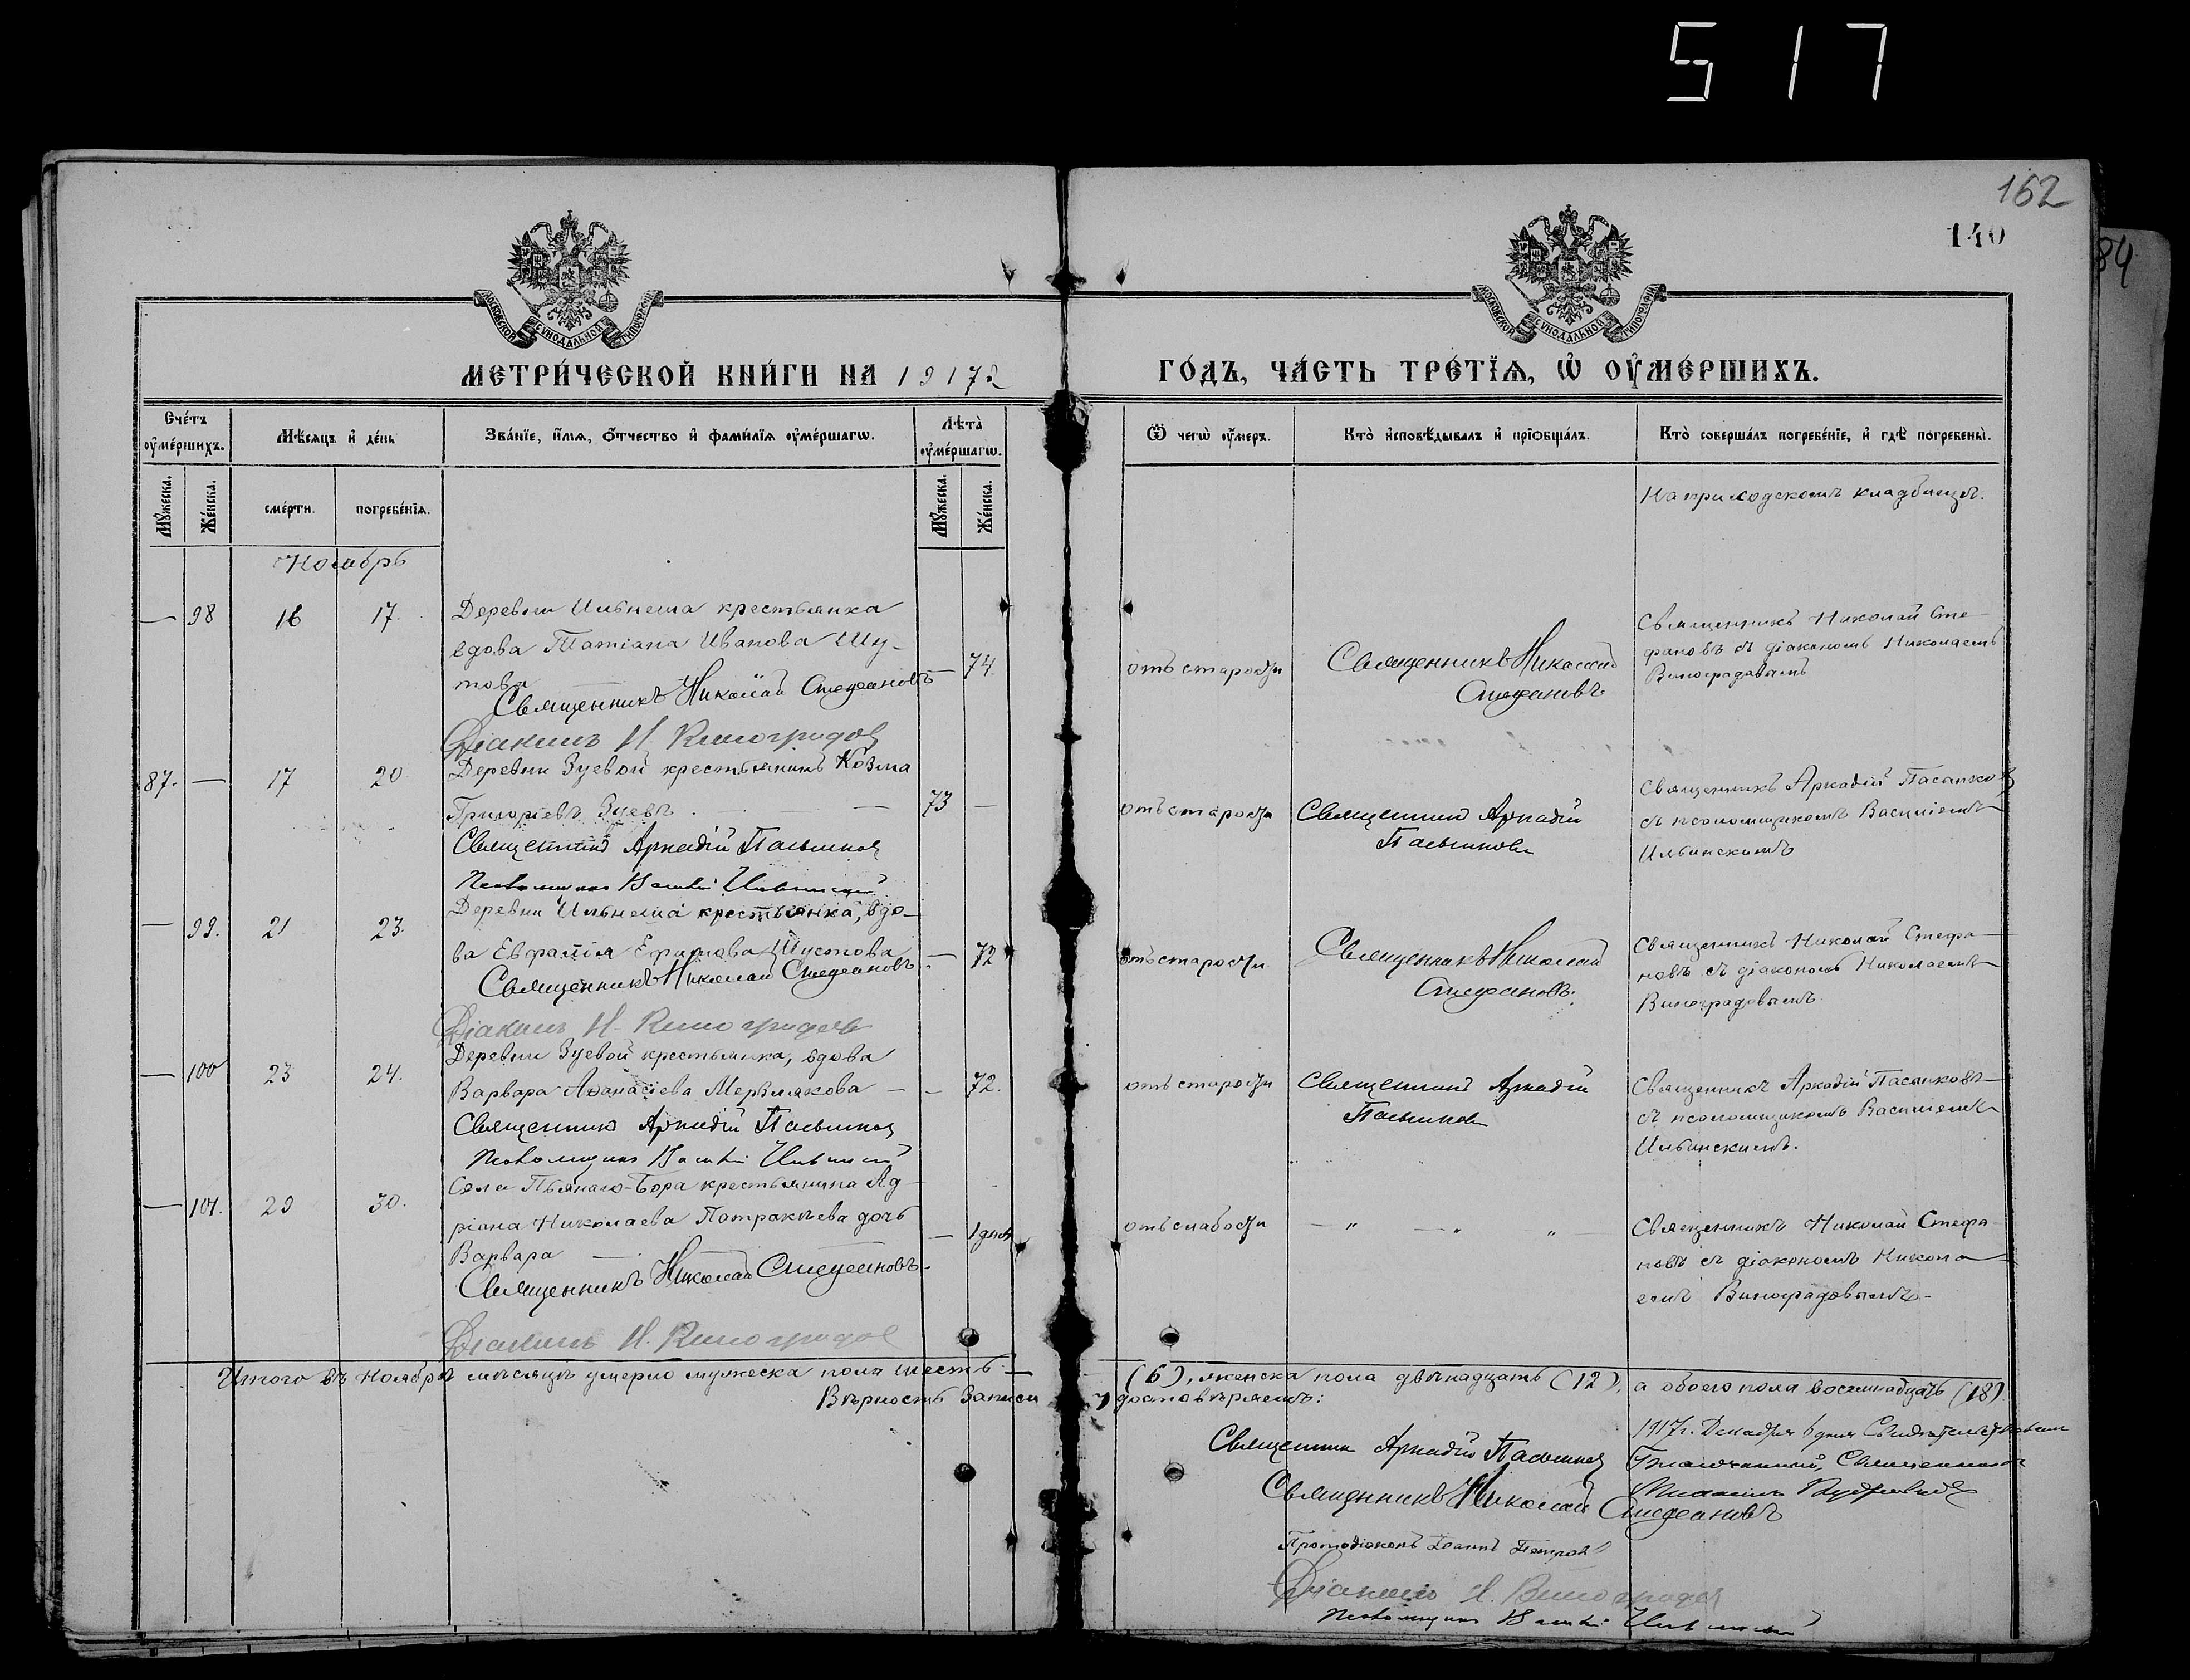 517
162
140
84
МОСКОВСКОЙ СѴНОДАЛЬНОЙ ТИПОГРАФІИ
МОСКОВСКОЙ СѴНОДАЛЬНОЙ ТИПОГРАФІИ
МЕТРИ́ЧЕСКОЙ КНИ́ГИ НА 1917 г
ГО́ДЪ, ЧА́СТЬ ТРЕ́ТІѦ, Ѡ҆ ОУ҆МЕ́РШИХЪ.
Сче́тъ оу҆ме́ршихъ.
Мѣ́сяцъ и҆ де́нь
Зва́нїе, и҆́мѧ, ѻ҆́тчество и҆ фами́лїѧ оу҆ме́ршагѡ.
Лѣ́та оу҆ме́ршагѡ.
Ѿ чегѡ̀ оу҆́меръ.
Кто̀ и҆сповѣ́дывалъ и҆ прїѡбща́лъ.
Кто̀ соверша́лъ погребе́нїе, и҆ гдѣ̀ погребены̀.
Мꙋ́жеска.
Же́нска.
сме́рти.
погребе́нїѧ.
Мꙋ́жеска.
Же́нска.
На приходскомъ кладбищѣ.
Ноябрь
— 98 16 17. Деревни Ильнеша крестьянка
вдова Татіана Иванова Шу-
това — 74.
Священникъ Николай Стефановъ
Діаконъ Н. Виноградов
отъ старости
Священникъ Николай
Стефановъ
Священникъ Николай Сте
фановъ съ діакономъ Николаемъ
Виноградовымъ
87. — 17 20 Деревни Зуевой крестьянинъ Козма
Григорьевъ Зуевъ. — 73 —
Священникъ Аркадій Пасынков
Псаломщикъ Василій Ильинскій
отъ старости
Священникъ Аркадій
Пасынков
Священникъ Аркадій Пасынков
съ псаломщикомъ Василіемъ
Ильинскимъ
— 99. 21 23. Деревни Ильнеша крестьянка, вдо-
ва Евфалія Ефимова Шустова — 72
Священникъ Николай Стефановъ
Діаконъ Н. Виноградовъ
отъ старости
Священникъ Николай
Стефановъ.
Священникъ Николай Стефа-
новъ съ діакономъ Николаемъ
Виноградовымъ
— 100 23 24. Деревни Зуевой крестьянка, вдова
Варвара Аѳанасіева Мерзлякова — 72.
Священникъ Аркадій Пасынков
Псаломщикъ Василій Ильинскій
отъ старости
Священникъ Аркадій
Пасынков
Священникъ Аркадій Пасынковъ
съ псаломщикомъ Василіемъ
Ильинскимъ.
— 101. 29 30. Села Пьянаго-Бора крестьянина Ад-
ріана Николаева Патракѣева дочь
Варвара — — 1 дня
Священникъ Николай Стефановъ.
Діаконъ Н. Виноградов
отъ слабости
— " — " "
Священникъ Николай Стефа
новъ съ діакономъ Никола
емъ Виноградовымъ
Итого въ ноябрѣ мѣсяцѣ умерло мужеска пола шесть (6), женска пола двѣнадцать (12), а обоего пола восемнадцать (18).
Вѣрность записи удостовѣряемъ:
Священник Аркадій Пасынков
Священникъ Николай Стефановъ
Протодіаконъ Іоаннъ Петровъ
Діаконъ Н. Виноградов
Псаломщикъ Василій Ильинскій
1917 г. Декабря 6 дня Свидѣтельствовал
Благочинный, Священникъ